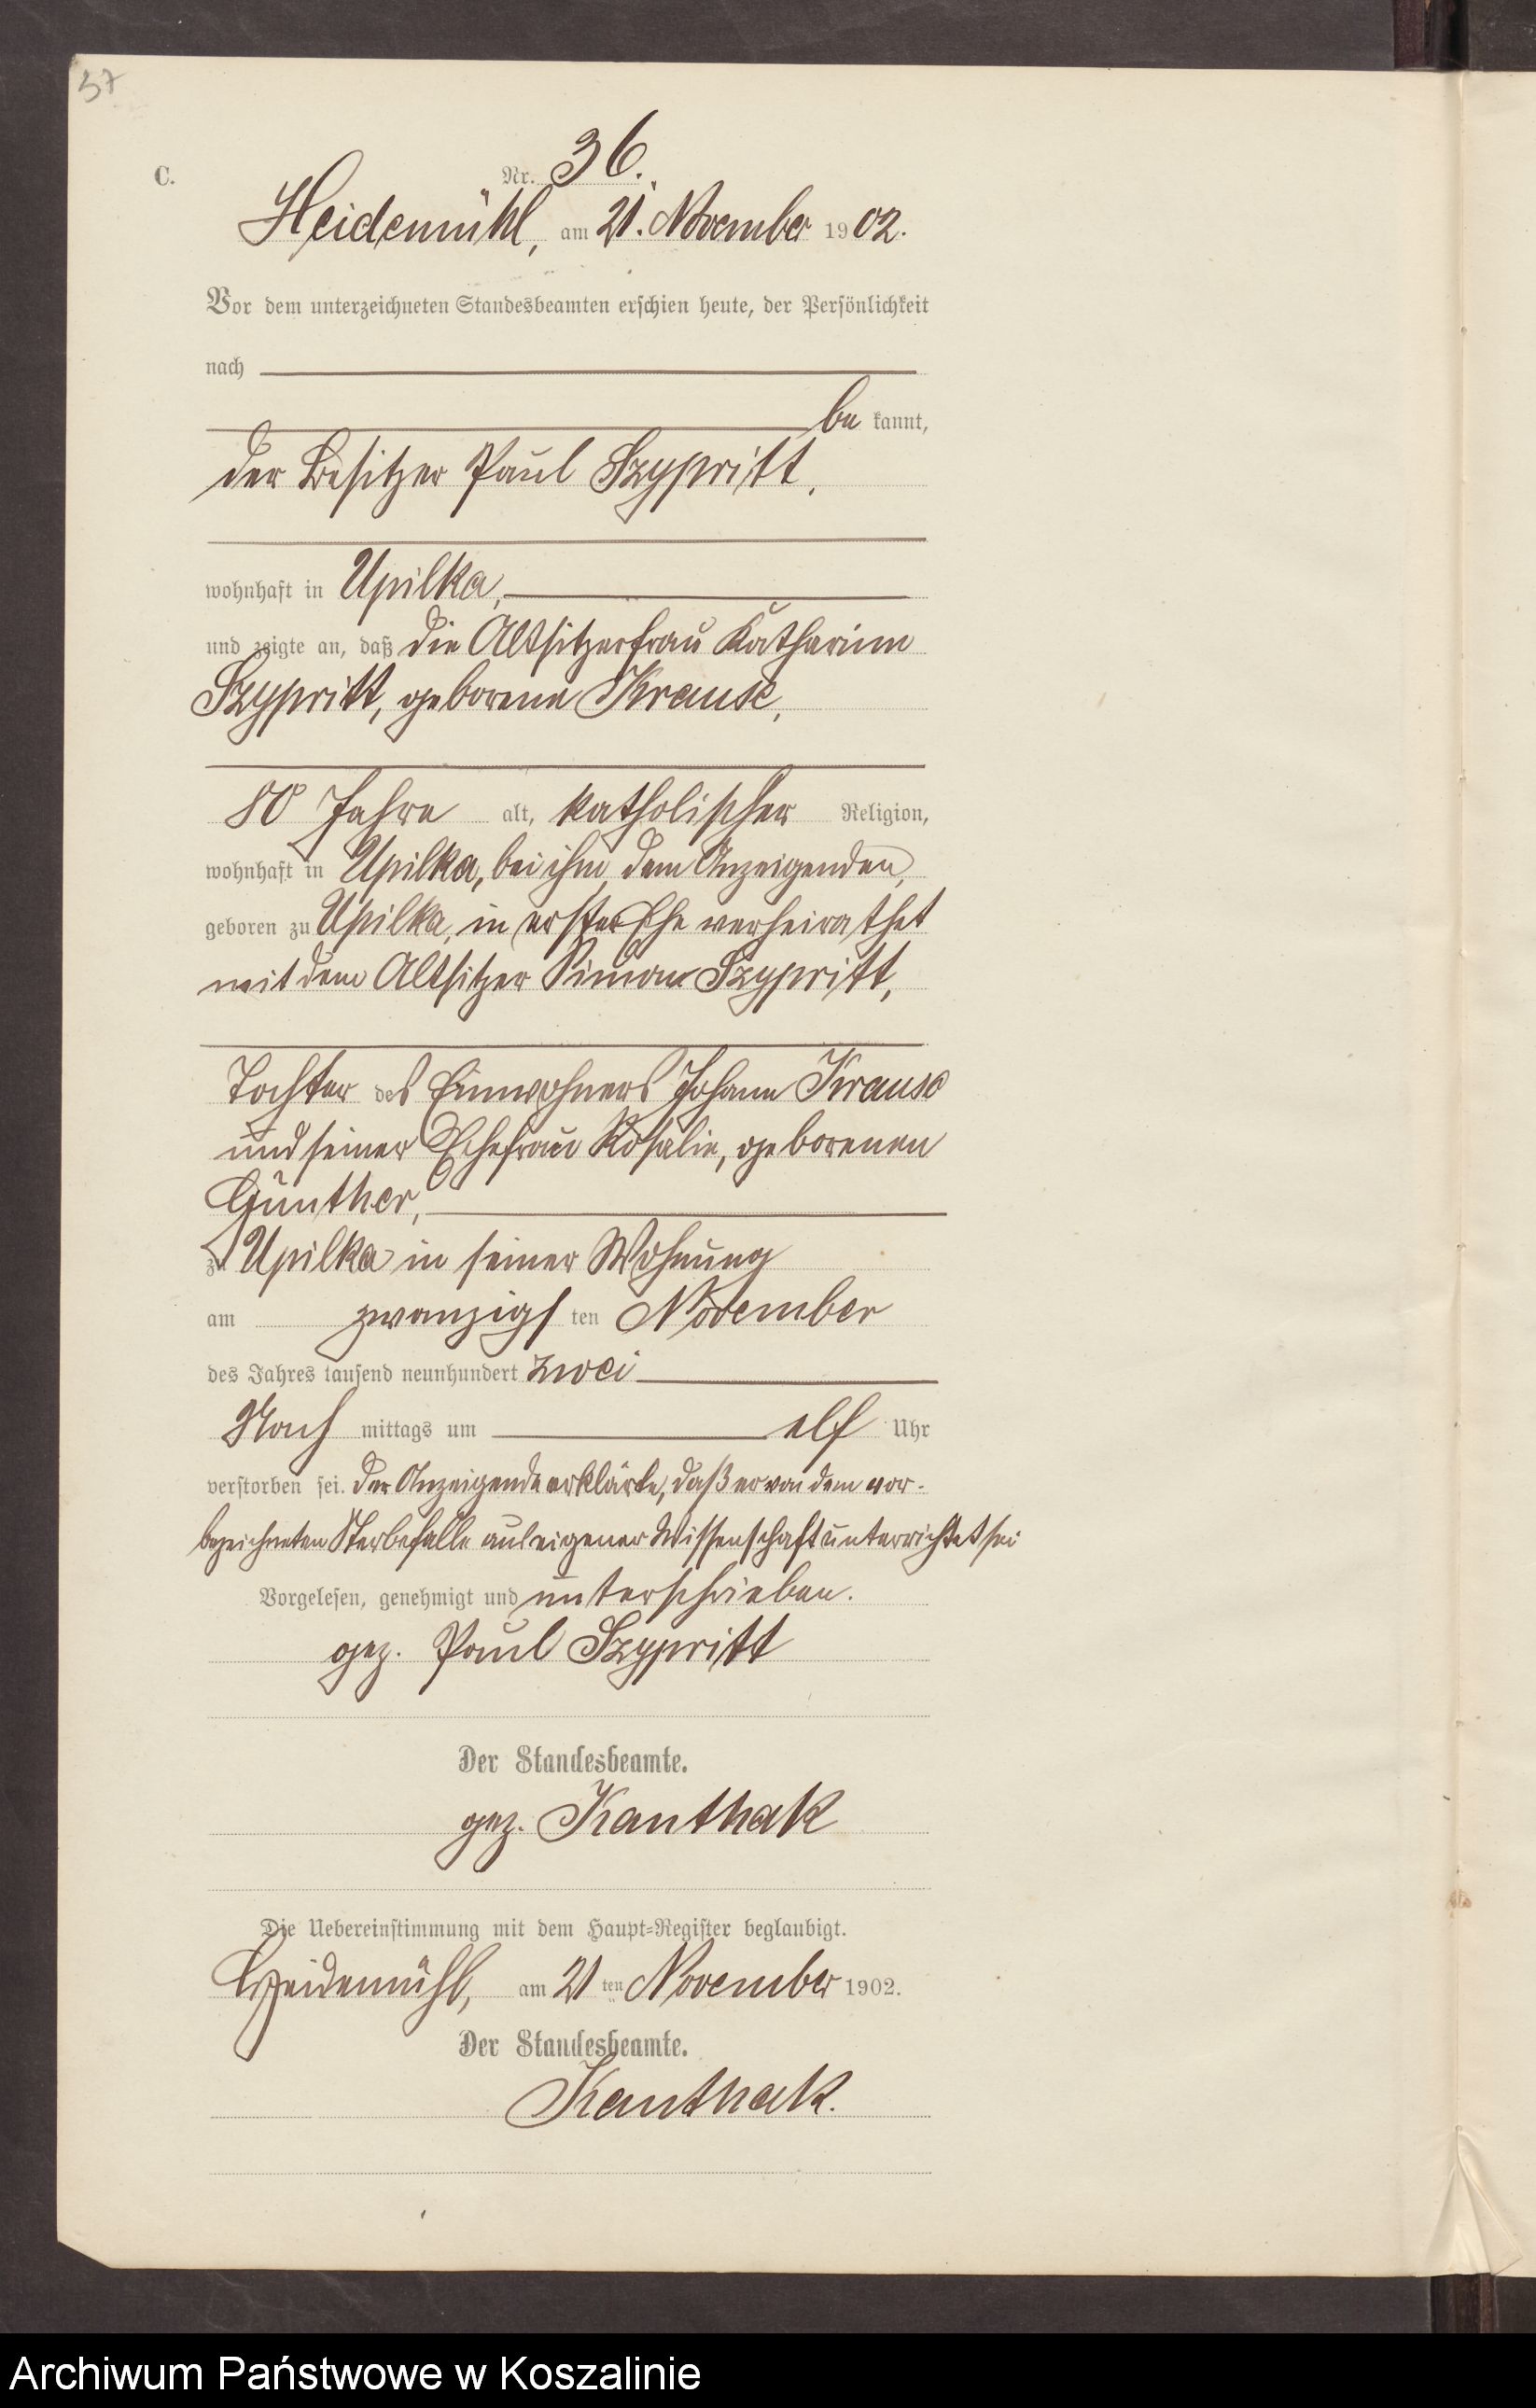 37
C.
Nr. 36.
Heidemühl, am 21. November 1902.
Vor dem unterzeichneten Standesbeamten erschien heute, der Persönlichkeit
nach
be kannt,
der Besitzer Paul Szypritt,
wohnhaft in Upilka,
und zeigte an, daß die Altsitzerfrau Katharina
Szypritt, geborene Krause,
80 Jahre alt, katholischer Religion,
wohnhaft in Upilka, bei ihm, dem Anzeigenden,
geboren zu Upilka, in erster Ehe verheirathet
mit dem Altsitzer Simon Szypritt,
Tochter des Einwohners Johann Krause
und seiner Ehefrau Rosalie, geborenen
Günther,
zu Upilka in seiner Wohnung
am zwanzigs ten November
des Jahres tausend neunhundert zwei
Nach mittags um elf Uhr
verstorben sei. Der Anzeigende erklärte, daß er von dem vor-
bezeichneten Sterbefalle aus eigener Wissenschaft unterrichtet sei
Vorgelesen, genehmigt und unterschrieben.
gez. Paul Szypritt
Der Standesbeamte.
gez. Kanthak
Die Uebereinstimmung mit dem Haupt-Register beglaubigt.
Heidemühl, am 21 ten November 1902.
Der Standesbeamte.
Kanthak.
Archiwum Państwowe w Koszalinie